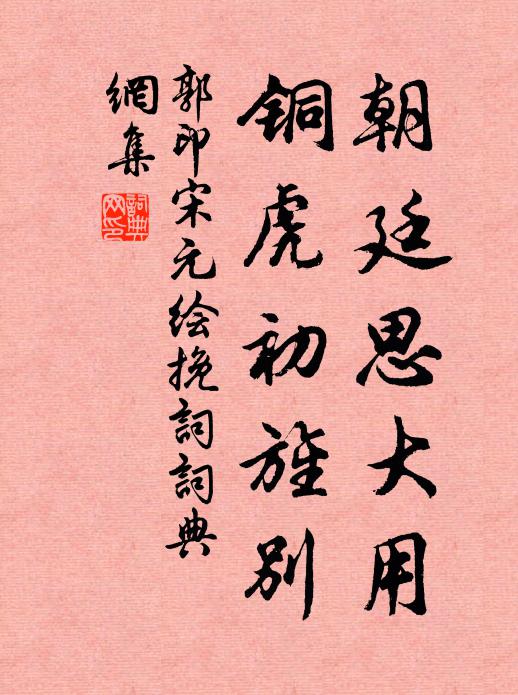 朝廷思大用
铜虎初旌别
郭印宋元绘挽詞詞典
網集
詞典
网印